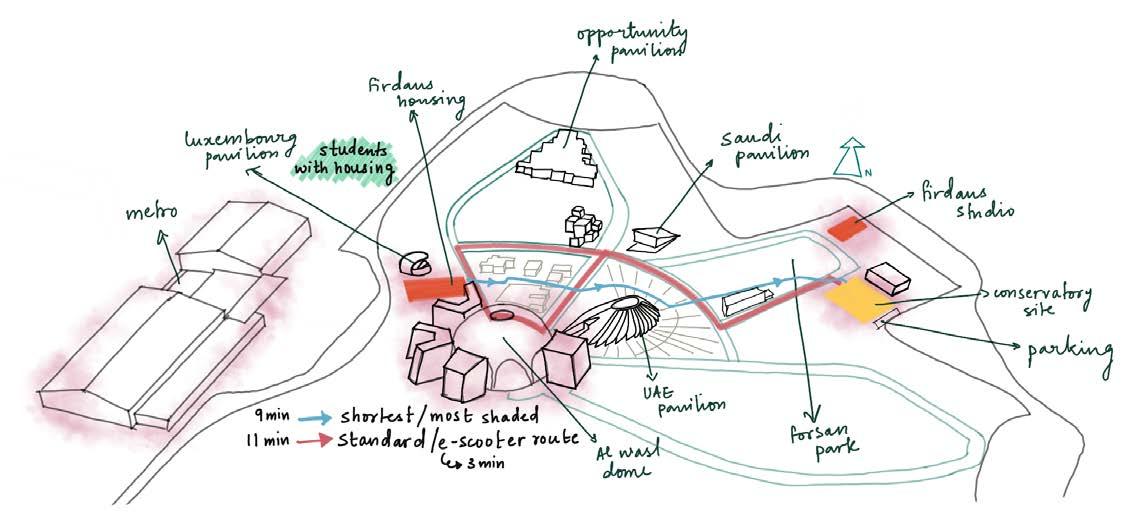 opportunity
pavilion
firdaus
housing
luxembourg
pavilion
students
with housing
saudi
pavilion
N
metro
firdaus
studio
conservatory
site
parking
UAE
pavilion
9 min → shortest/most shaded
11 min → standard/e-scooter route
↳ 3 min
Al wasl
dome
forsan
park